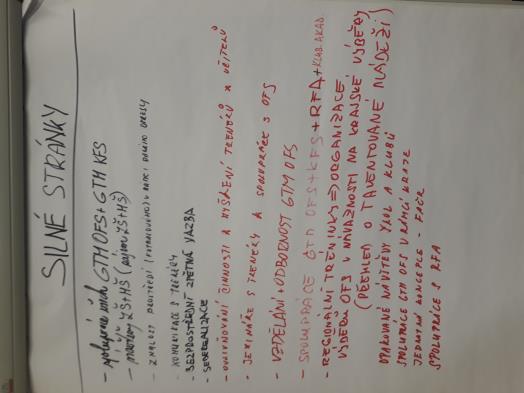 SILNÉ STRÁNKY
- spolupráce mezi GTM OFS + GTM KFS
- návštěvy ZŠ + MŠ (nejsou ZŠ + MŠ)
- ZNALOST PROSTŘEDÍ (FOTBALOVÉHO) V RÁMCI OKRESU
- KOMUNIKACE S TRENÉRY
- BEZPROSTŘEDNÍ ZPĚTNÁ VAZBA
- SEBEREALIZACE
- OVLIVŇOVÁNÍ ČINNOSTI A MYŠLENÍ TRENÉRŮ A UČITELŮ
- SEMINÁŘE S TRENÉRY A SPOLUPRÁCE S OFS
- VZDĚLÁNÍ + ODBORNOST GTM OFS
- SPOLUPRÁCE GTM OFS + KFS + RFA + KLUB. AKAD.
- REGIONÁLNÍ TRÉNINKY => ORGANIZACE
VÝBĚRU OFS V NÁVAZNOSTI NA KRAJSKÉ VÝBĚRY
(PŘEHLED O TALENTOVANÉ MLÁDEŽI)
OPAKOVANÉ NÁVŠTĚVY ŠKOL A KLUBŮ
SPOLUPRÁCE GTM OFS V RÁMCI KRAJE
JEDNOTNÁ KONCEPCE - FAČR
SPOLUPRÁCE S RFA